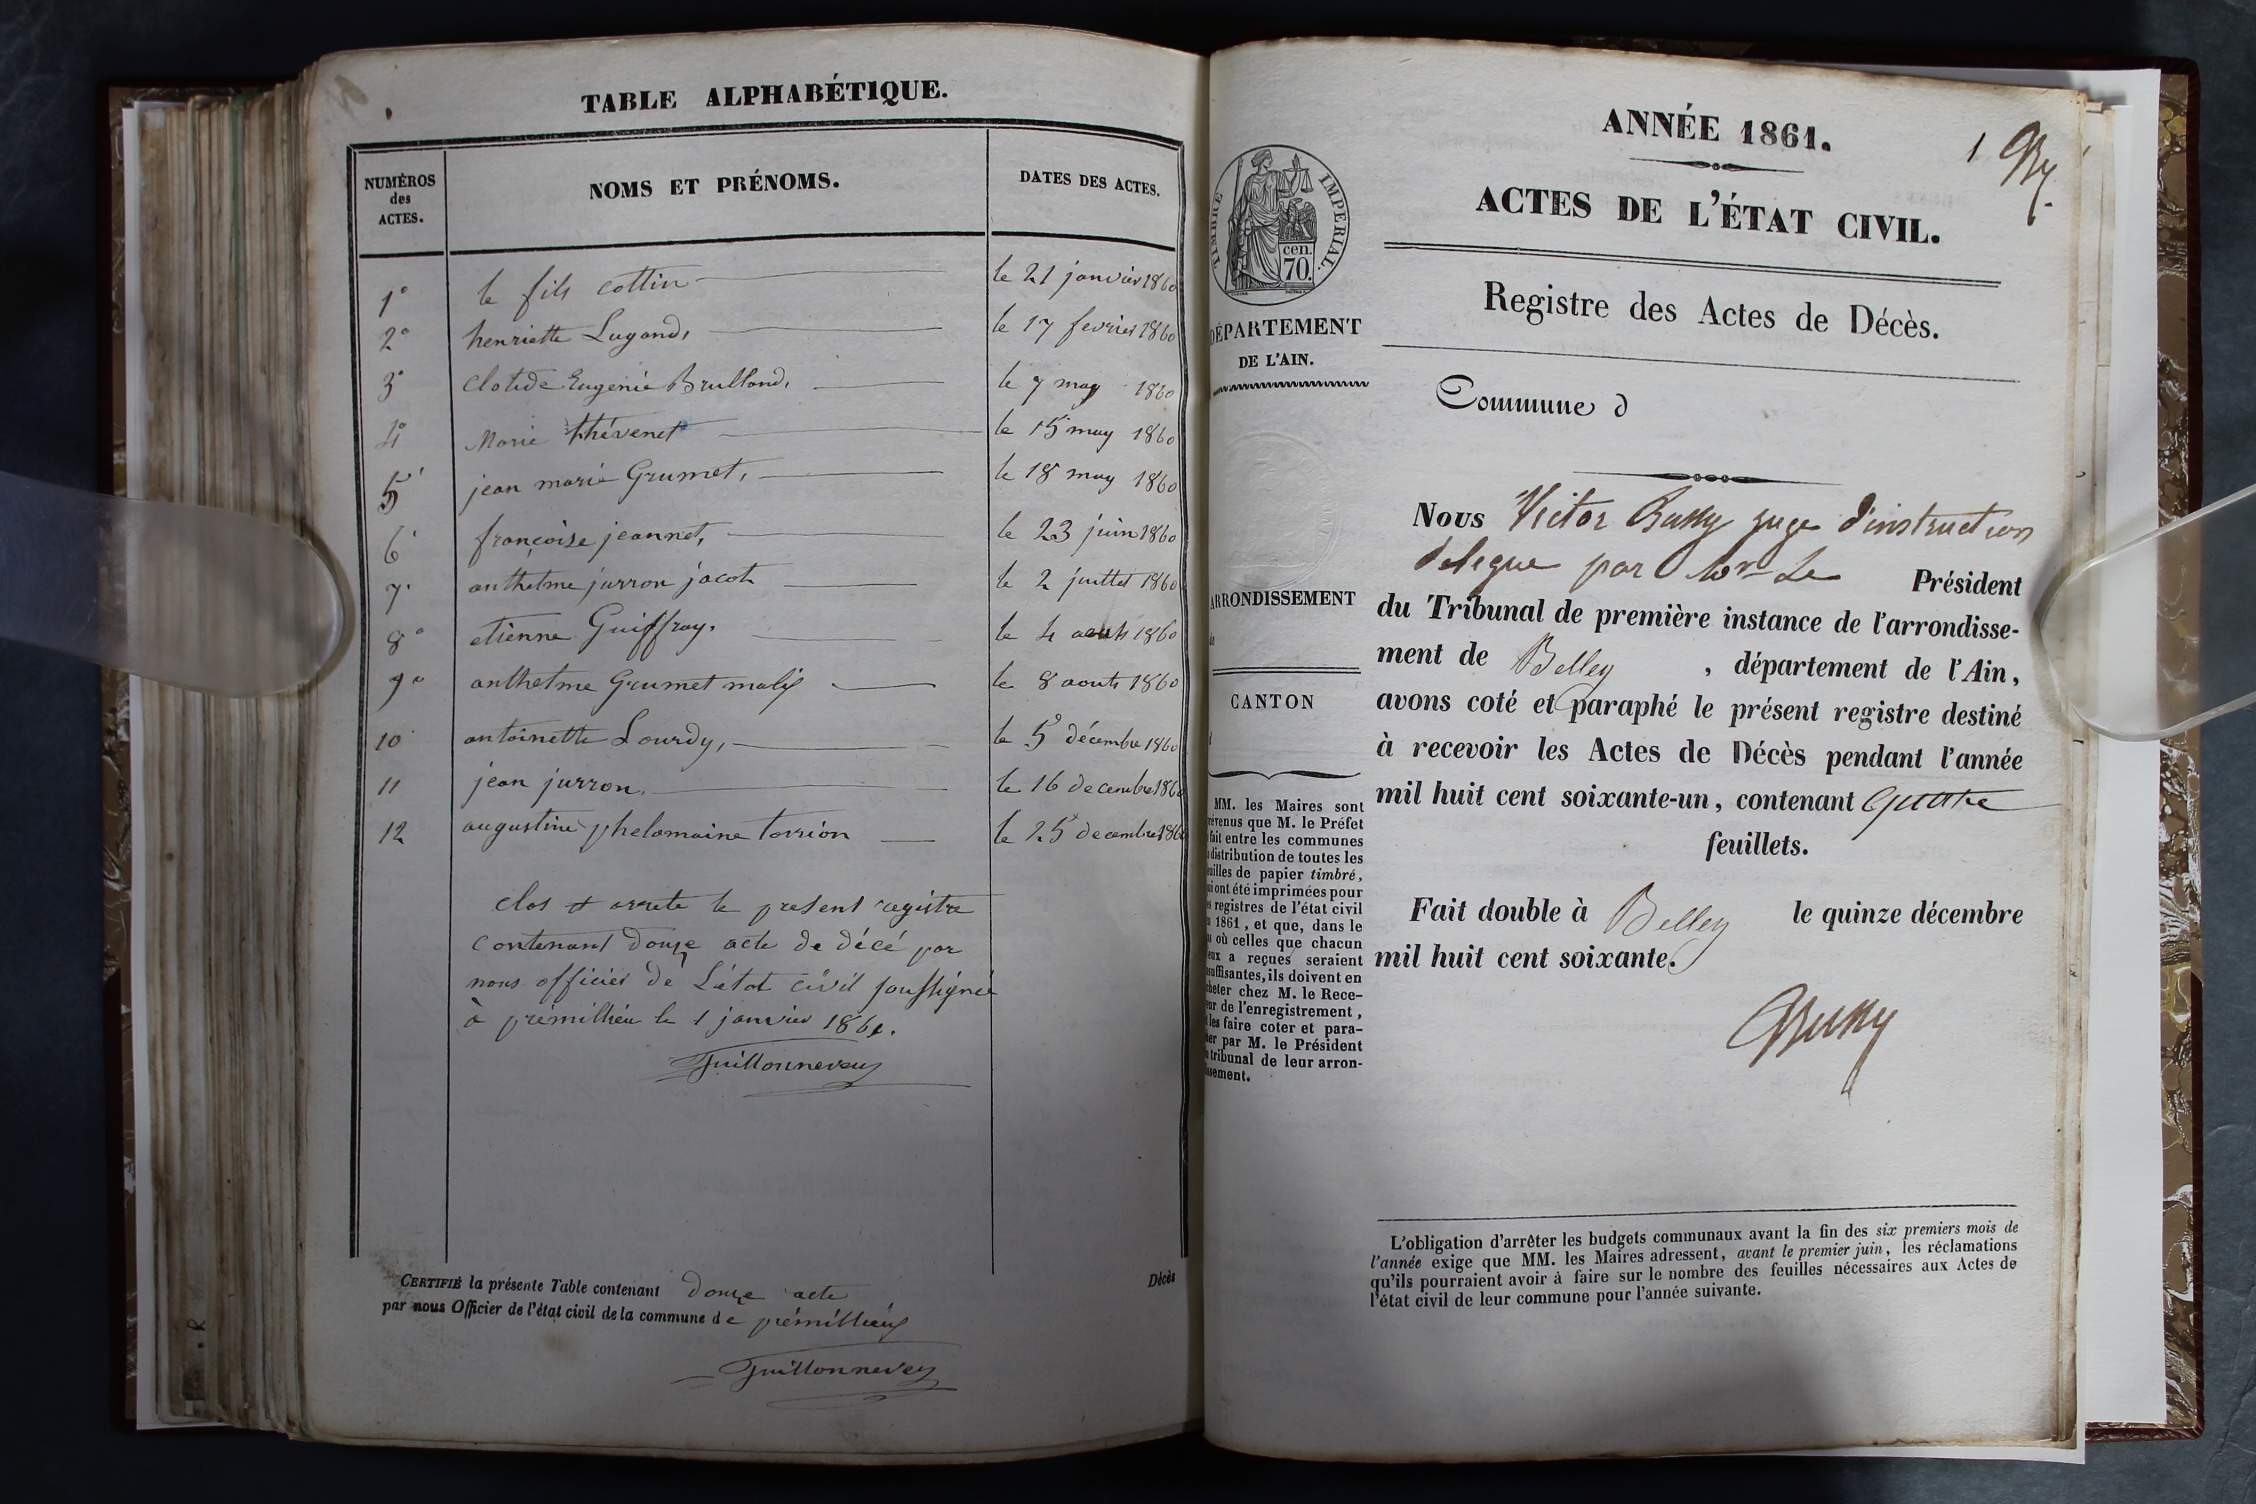 TABLE ALPHABÉTIQUE.
NUMÉROS des ACTES.
NOMS ET PRÉNOMS.
DATES DES ACTES.
1° le fils cottin le 21 janvier 1860
2° henriette Lugand, le 17 fevrier 1860
3° Clotide Eugenie Brulland, le 7 may 1860
4° Marie thévenet le 15 may 1860
5 jean marie Grumet, le 18 may 1860
6 françoise jeannet, le 23 juin 1860
7 anthelme jurron jacob le 2 juillet 1860
8° etienne Guiffray, le 4 aouts 1860
9° anthelme Grumet le 8 aouts 1860
10 antoinette Lourdy, le 5 décembre 1860
11 jean jurron, le 16 decembre 1860
12 augustine phelomaine torrion le 25 decembre 1860
clos et arrete le present registre
contenant douze acte de décé par
nous officier de L'état civil soussigné
à prémillieu le 1 janvier 1861.
Guillonneveu
CERTIFIÉ la présente Table contenant douze acte
par nous Officier de l'état civil de la commune de prémillieu
Décès
Guillonneveu
ANNÉE 1861.
1
ACTES DE L'ÉTAT CIVIL.
TIMBRE IMPERIAL.
cen.
70.
Registre des Actes de Décès.
DÉPARTEMENT
DE L'AIN.
Commune d
Nous Victor Bussy juge d'instruction
delegue par Mr Le Président
ARRONDISSEMENT
du Tribunal de première instance de l'arrondisse-
ment de Belley, département de l'Ain,
avons coté et paraphé le présent registre destiné
à recevoir les Actes de Décès pendant l'année
mil huit cent soixante-un, contenant quatre
feuillets.
Fait double à Belley le quinze décembre
mil huit cent soixante.
Bussy
CANTON
MM. les Maires sont
prévenus que M. le Préfet
fait entre les communes
distribution de toutes les
feuilles de papier timbré,
qui ont été imprimées pour
registres de l'état civil
1861, et que, dans le
où celles que chacun
d'eux a reçues seraient
insuffisantes, ils doivent en
acheter chez M. le Rece-
veur de l'enregistrement,
les faire coter et para-
pher par M. le Président
tribunal de leur arron-
dissement.
L'obligation d'arrêter les budgets communaux avant la fin des six premiers mois de
l'année exige que MM. les Maires adressent, avant le premier juin, les réclamations
qu'ils pourraient avoir à faire sur le nombre des feuilles nécessaires aux Actes de
l'état civil de leur commune pour l'année suivante.